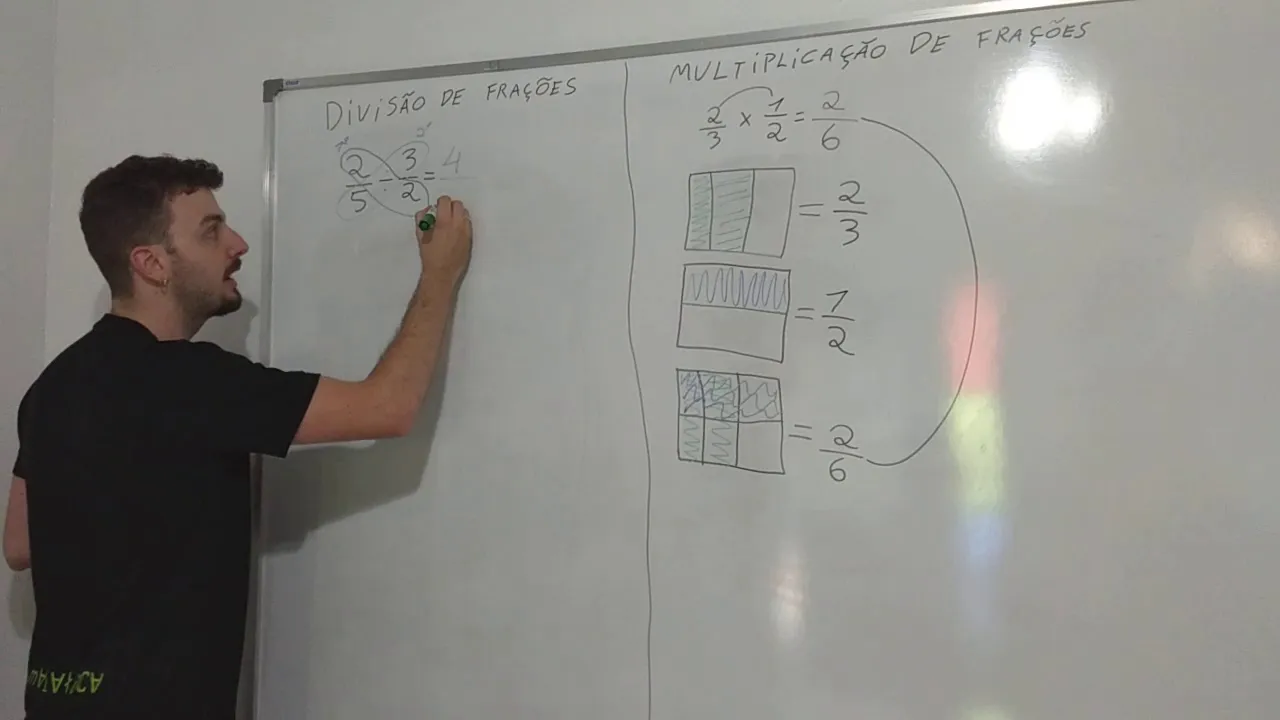 DIVISÃO DE FRAÇÕES
1º 2º
2/5 ÷ 3/2 = 4
MULTIPLICAÇÃO DE FRAÇÕES
2/3 x 1/2 = 2/6
= 2/3
= 1/2
= 2/6